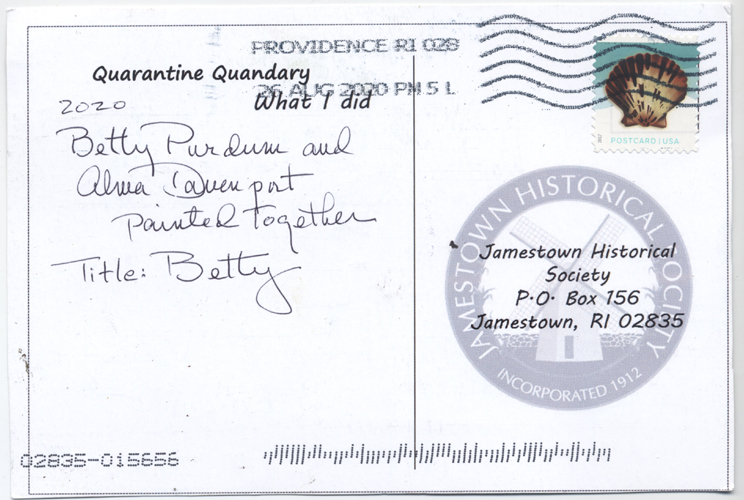 PROVIDENCE RI 028
26 AUG 2020 PM 5 L
Quarantine Quandary
What I did
2020
Betty Purdum and
Alma Davenport
Painted Together
Title: Betty
POSTCARD | USA
JAMESTOWN HISTORICAL SOCIETY
Jamestown Historical
Society
P.O. Box 156
Jamestown, RI 02835
INCORPORATED 1912
02835-015656